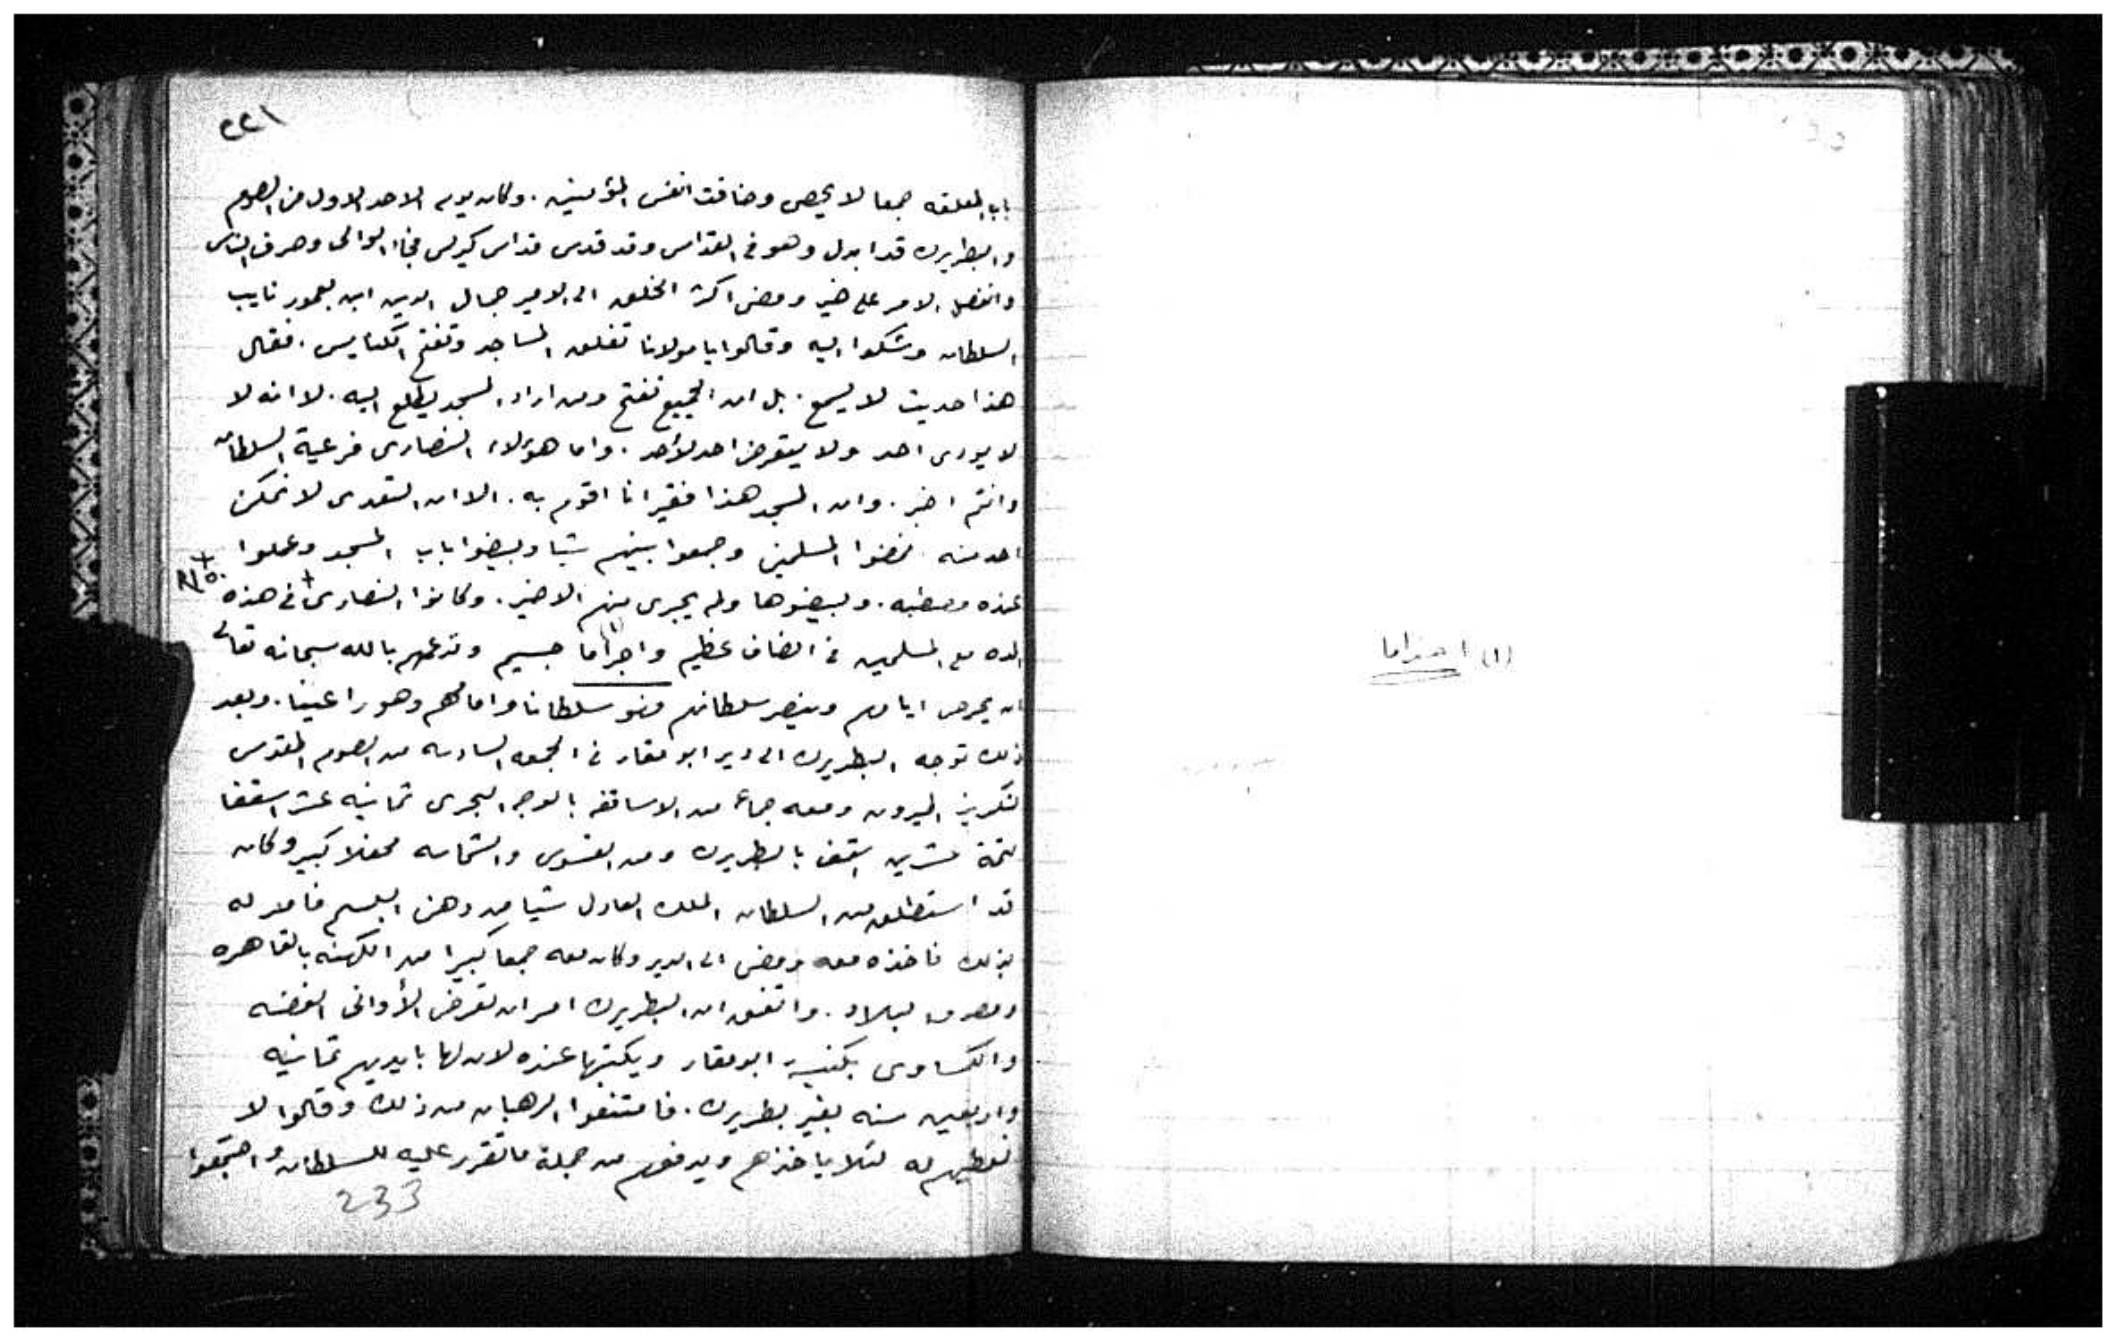 ٢٢١
باب المعلقه جمعا لا يحصى وضاقت انفس المؤمنين . وكان يوم الاحد الاول من الصوم
والبطريرك قد ابدل وهو فى القداس وقد قدس قداس كيرلس فجاء الوالى وصرف الناس
وانفصل الامر على خير ومضى اكثر الخلق الى الامير جمال الدين ابن يغمور نايب
السلطان وشكوا اليه وقالوا يا مولانا تغلق المساجد وتفتح الكنايس . فقال
هذا حديث لا يسمع . بل ان الجميع تفتح ومن اراد المسجد يطلع اليه . لا انه لا
لا يوذى احد ولا يتعرض احد لأحد . واما هؤلاء النصارى فرعية السلطان
وانتم اخبر . وان المسجد هذا فقير انا اقوم به . الا ان التعدى لا نمكن
احد منه . فمضوا المسلمين وجمعوا بينهم شيا وبيضوا باب المسجد وعملوا
عنده مصطبه . وبيضوها ولم يجرى منهم الا خير . وكانوا النصارى + فى هذه
المده مع المسلمين فى انصاف عظيم واجراما (١) جسيم وتدعيهم بالله سبحانه تعالى
ان يحرس ايامهم وينصر سلطانهم فهو سلطانا وامانهم وهو راعينا . وبعد
ذلك توجه البطريرك الى دير ابو مقار فى الجمعه السادسه من الصوم المقدس
لتكريز الميرون ومعه جماعة من الاساقفه بالوجه البحرى ثمانيه عشر اسقفا
تتمة عشرين اسقف بالبطريرك ومن القسوس والشمامسه محفلا كبير وكان
قد استطلق من السلطان الملك العادل شيا من دهن البلسم فامر له
بذلك فاخذه معه ومضى الى الدير وكان معه جمعا كبيرا من الكهنه بالقاهره
ومصر والبلاد . واتفق ان البطريرك امر ان تعرض الأوانى الفضه
والكساوى بكنيسة ابو مقار ويكتبها عنده لان لها بايديهم ثمانيه
واربعين سنه بغير بطريرك . فامتنعوا الرهبان من ذلك وقالوا لا
نعطيهم له لئلا ياخذهم ويدفعهم من جملة ما تقرر عليه للسلطان واجتمعوا
233
(١) احتراما